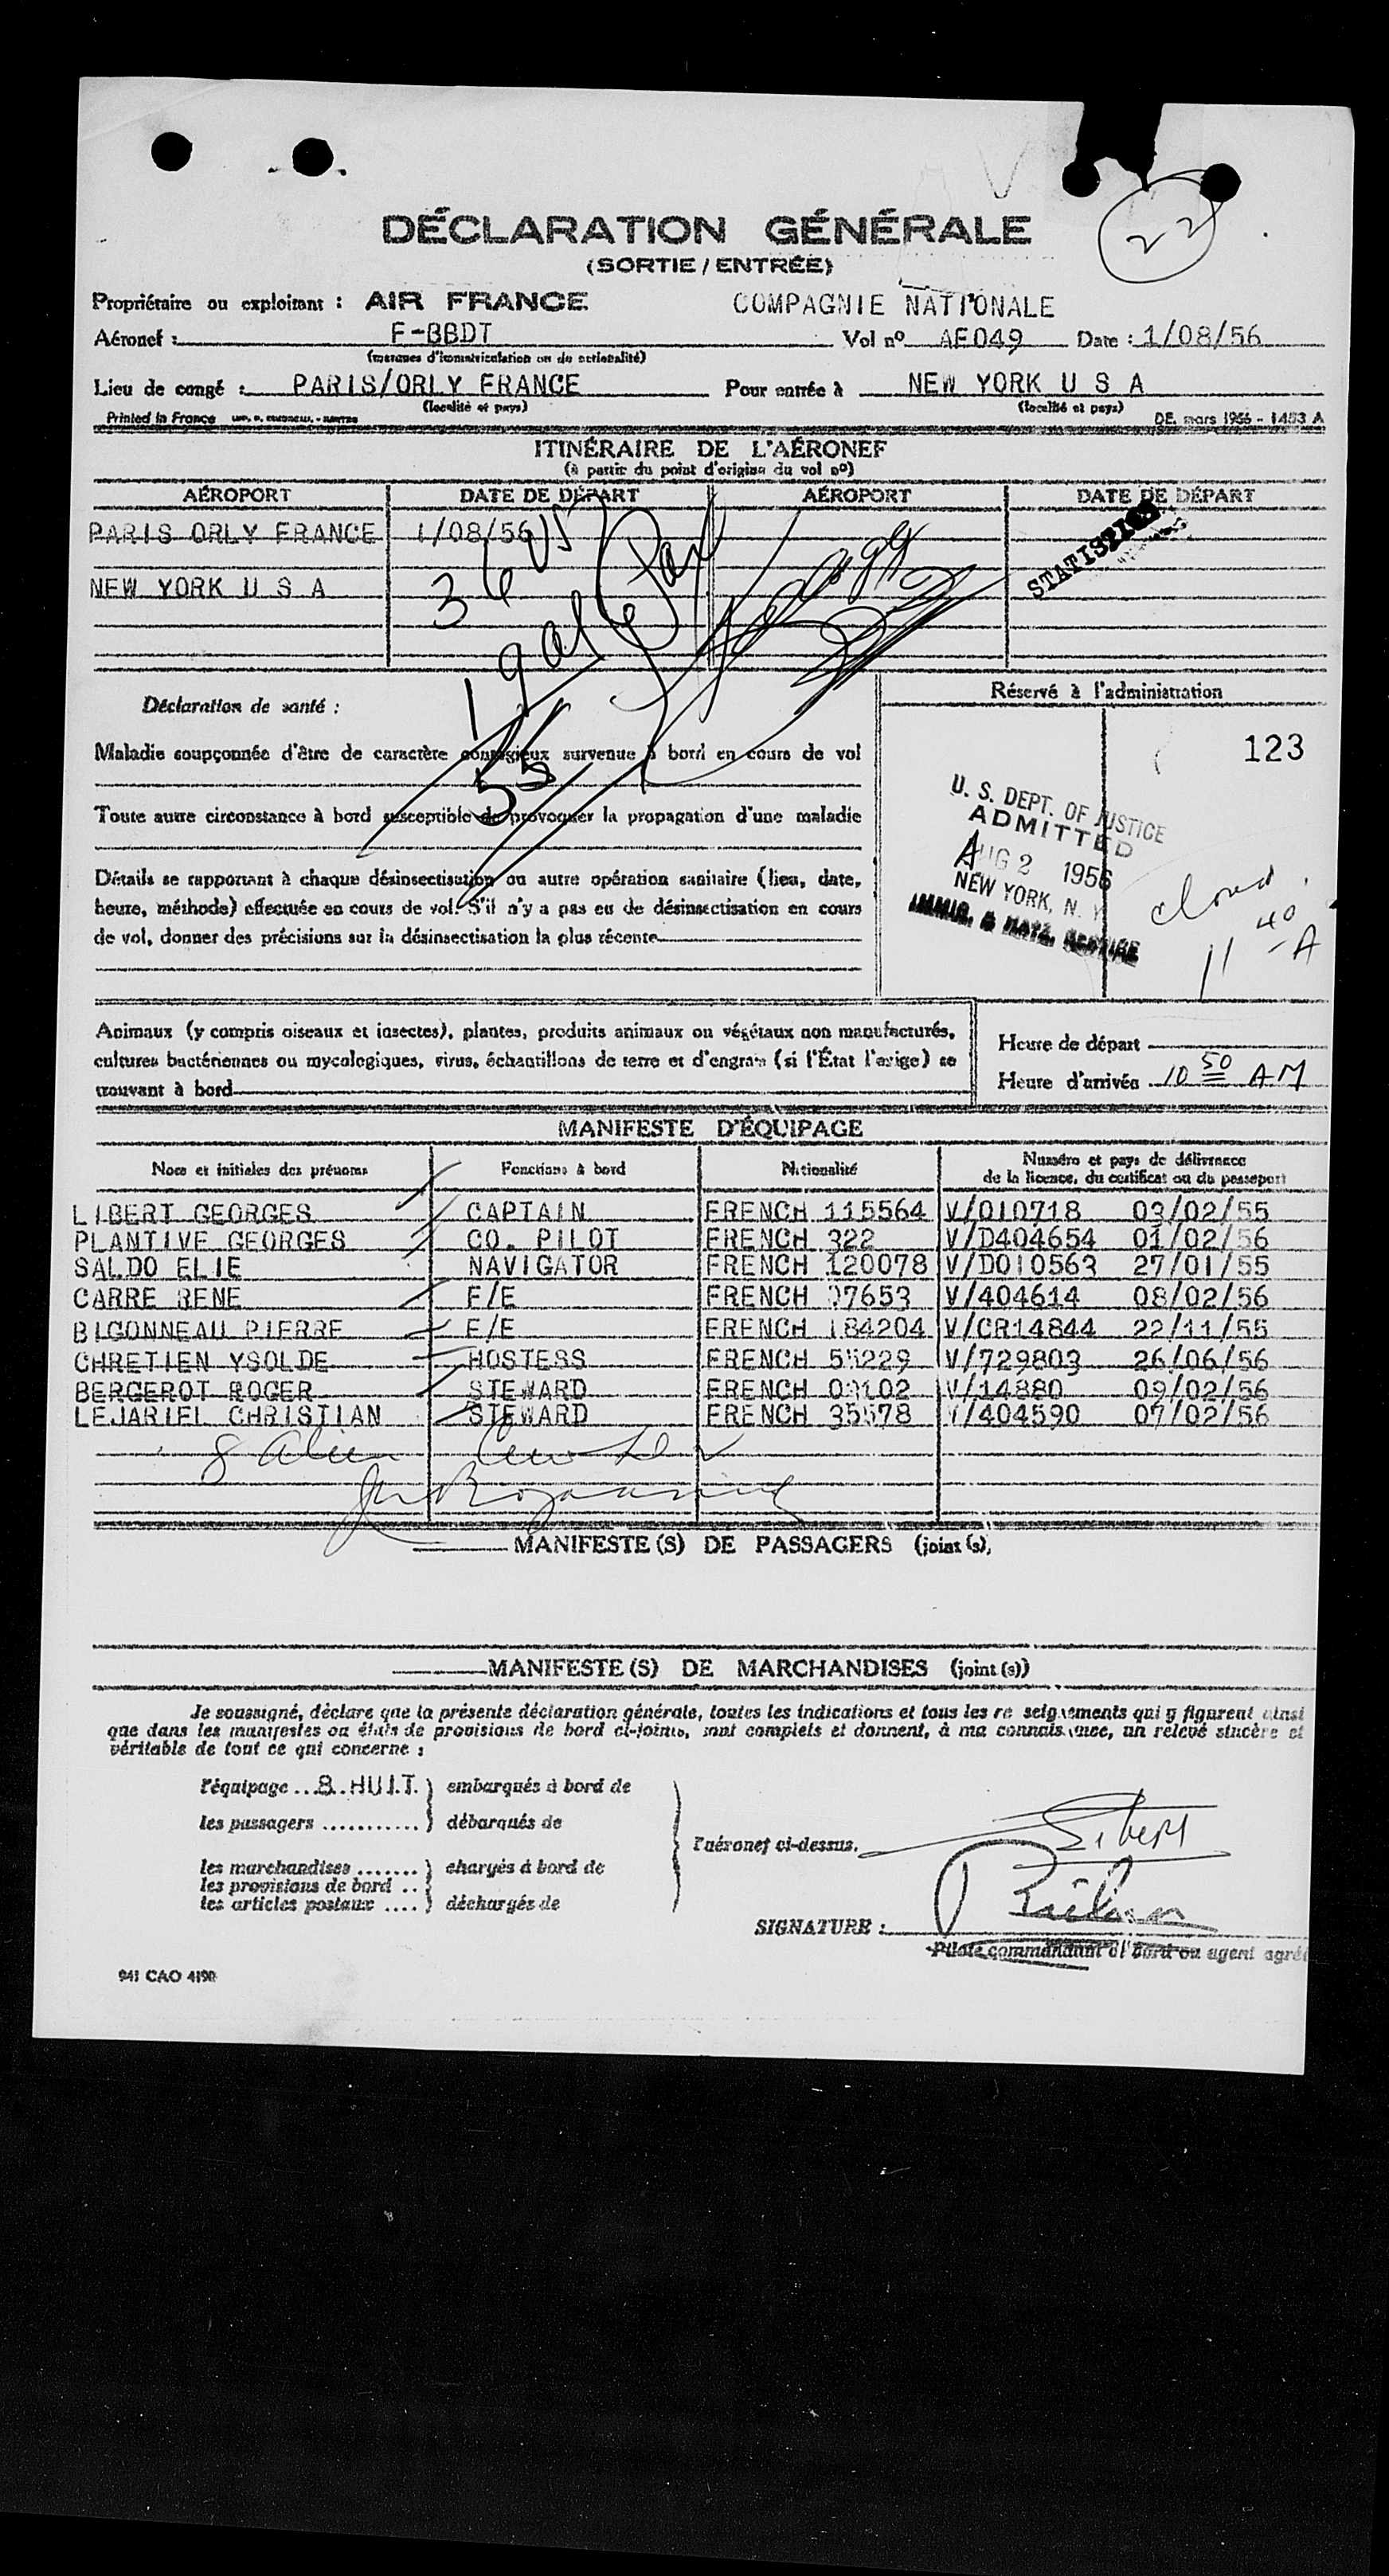 22
DÉCLARATION GÉNÉRALE
(SORTIE / ENTRÉE)
Propriétaire ou exploitant : AIR FRANCE COMPAGNIE NATIONALE
Aéronef : F-BBDT Vol nº AF049 Date : 1/08/56
(marques d'immatriculation ou de nationalité)
Lieu de congé : PARIS/ORLY FRANCE Pour entrée à NEW YORK U S A
(localité et pays) (localité et pays)
Printed in France DE. mars 1956 - 1453 A
ITINÉRAIRE DE L'AÉRONEF
(à partir du point d'origine du vol nº)
AÉROPORT DATE DE DÉPART AÉROPORT DATE DE DÉPART
PARIS ORLY FRANCE 1/08/56
STATISTICS
NEW YORK U S A 36 US
55
Déclaration de santé :
Réservé à l'administration
123
Maladie soupçonnée d'être de caractère contagieux survenue à bord en cours de vol
Toute autre circonstance à bord susceptible de provoquer la propagation d'une maladie
Détails se rapportant à chaque désinsectisation ou autre opération sanitaire (lieu, date,
heure, méthode) effectuée en cours de vol. S'il n'y a pas eu de désinsectisation en cours
de vol, donner des précisions sur la désinsectisation la plus récente
U. S. DEPT. OF JUSTICE
ADMITTED
AUG 2 1956
NEW YORK, N. Y.
IMMIG. & NATZ. SERVICE
11 40 A
Animaux (y compris oiseaux et insectes), plantes, produits animaux ou végétaux non manufacturés,
cultures bactériennes ou mycologiques, virus, échantillons de terre et d'engrais (si l'État l'exige) se
trouvant à bord
Heure de départ
Heure d'arrivée 10 50 AM
MANIFESTE D'ÉQUIPAGE
Noms et initiales des prénoms Fonctions à bord Nationalité Numéro et pays de délivrance
de la licence, du certificat ou du passeport
LIBERT GEORGES CAPTAIN FRENCH 115564 V/010718 03/02/55
PLANTIVE GEORGES CO. PILOT FRENCH 322 V/D404654 01/02/56
SALDO ELIE NAVIGATOR FRENCH 120078 V/D010563 27/01/55
CARRE RENE F/E FRENCH 37653 V/404614 08/02/56
BIGONNEAU PIERRE F/E FRENCH 184204 V/CR14844 22/11/55
CHRETIEN YSOLDE HOSTESS FRENCH 55229 V/729803 26/06/56
BERGEROT ROGER STEWARD FRENCH V/14880 09/02/56
LEJARIEL CHRISTIAN STEWARD FRENCH 35578 V/404590 07/02/56
8 Alien
MANIFESTE (S) DE PASSAGERS (joint (s))
MANIFESTE (S) DE MARCHANDISES (joint (s))
Je soussigné, déclare que la présente déclaration générale, toutes les indications et tous les renseignements qui y figurent ainsi
que dans les manifestes ou états de provisions de bord ci-joints, sont complets et donnent, à ma connaissance, un relevé sincère et
véritable de tout ce qui concerne :
l'équipage ... 8 HUIT. ) embarqués à bord de
les passagers ........... ) débarqués de
l'aéronef ci-dessus. Libert
les marchandises ....... ) chargés à bord de
les provisions de bord ..
les articles postaux .... ) déchargés de
SIGNATURE :
Pilote commandant d' bord ou agent agréé
941 CAO 4190